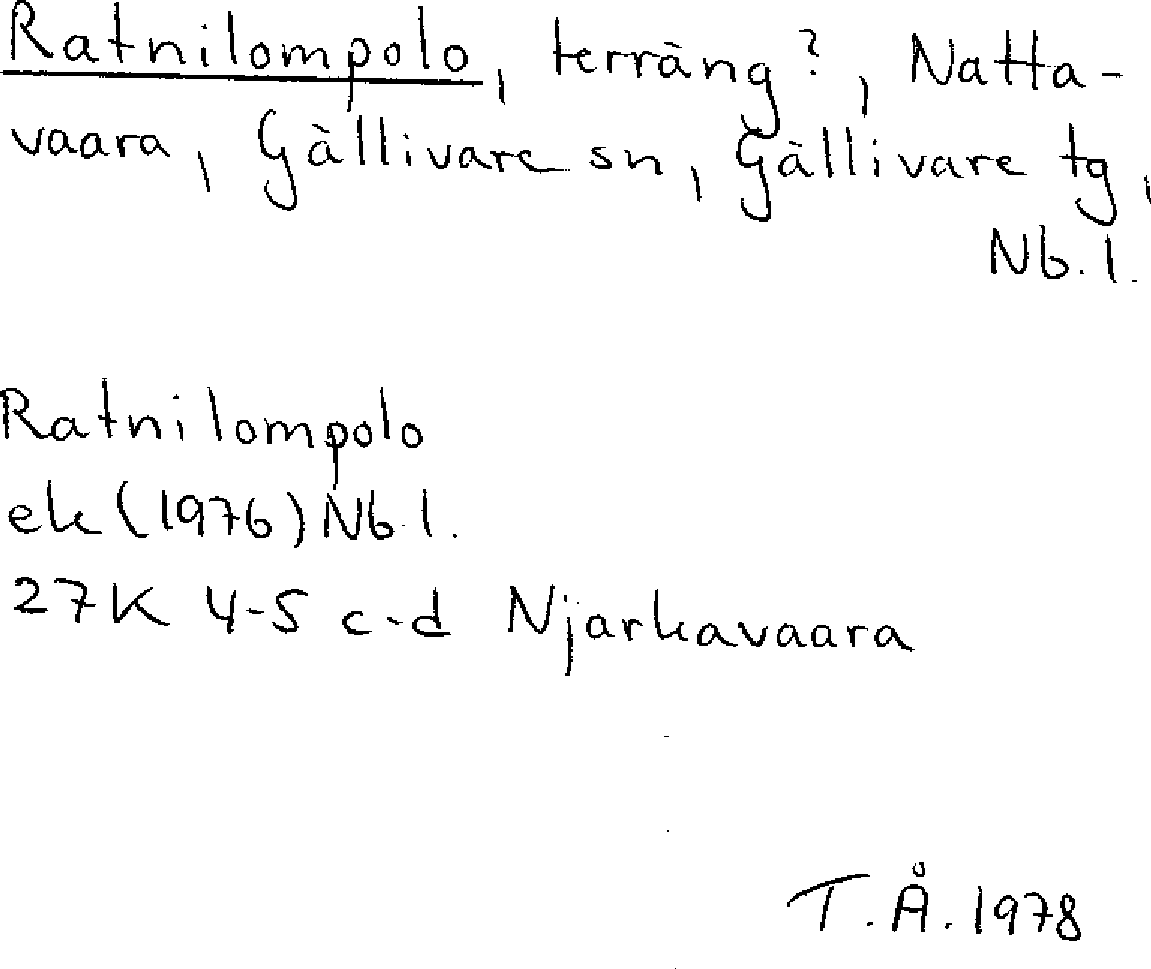 Ratnilompolo, terräng?, Natta-
vaara, Gällivare sn, Gällivare tg,
Nb.l.
Ratnilompolo
ek (1976) Nb.l.
27K 4-5 c-d Njarkavaara
T.Å. 1978